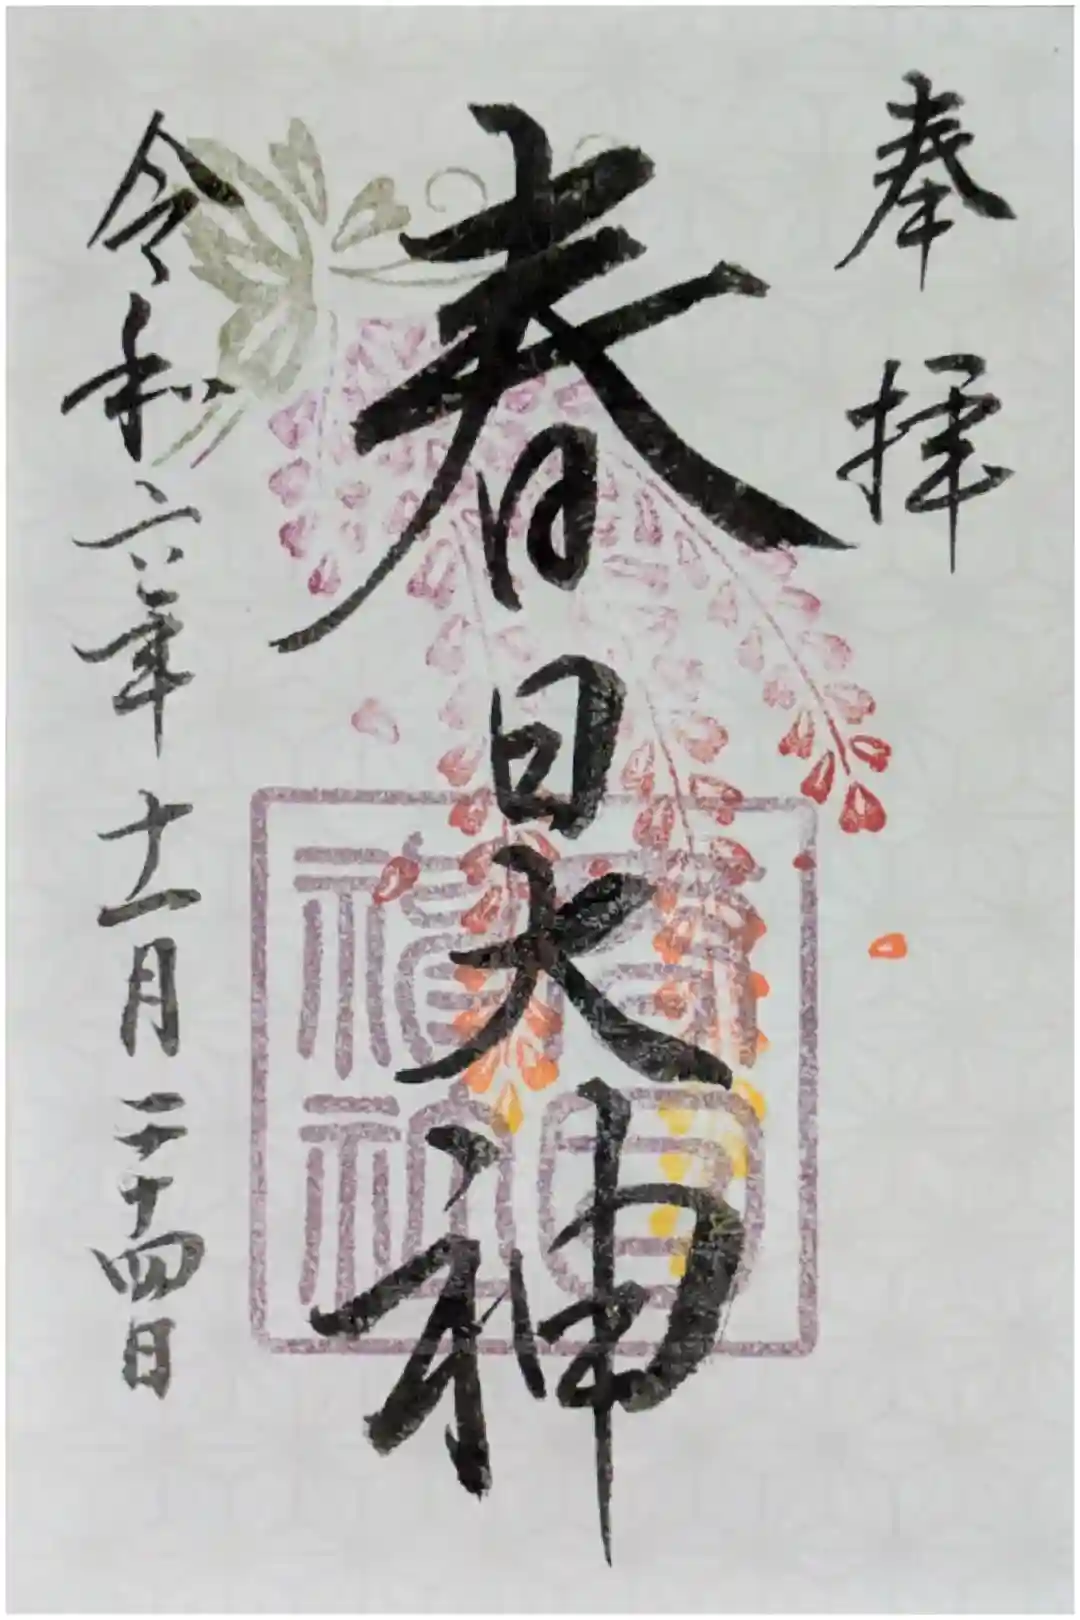 奉拝
春日大神
春日福神
令和六年十一月二十四日